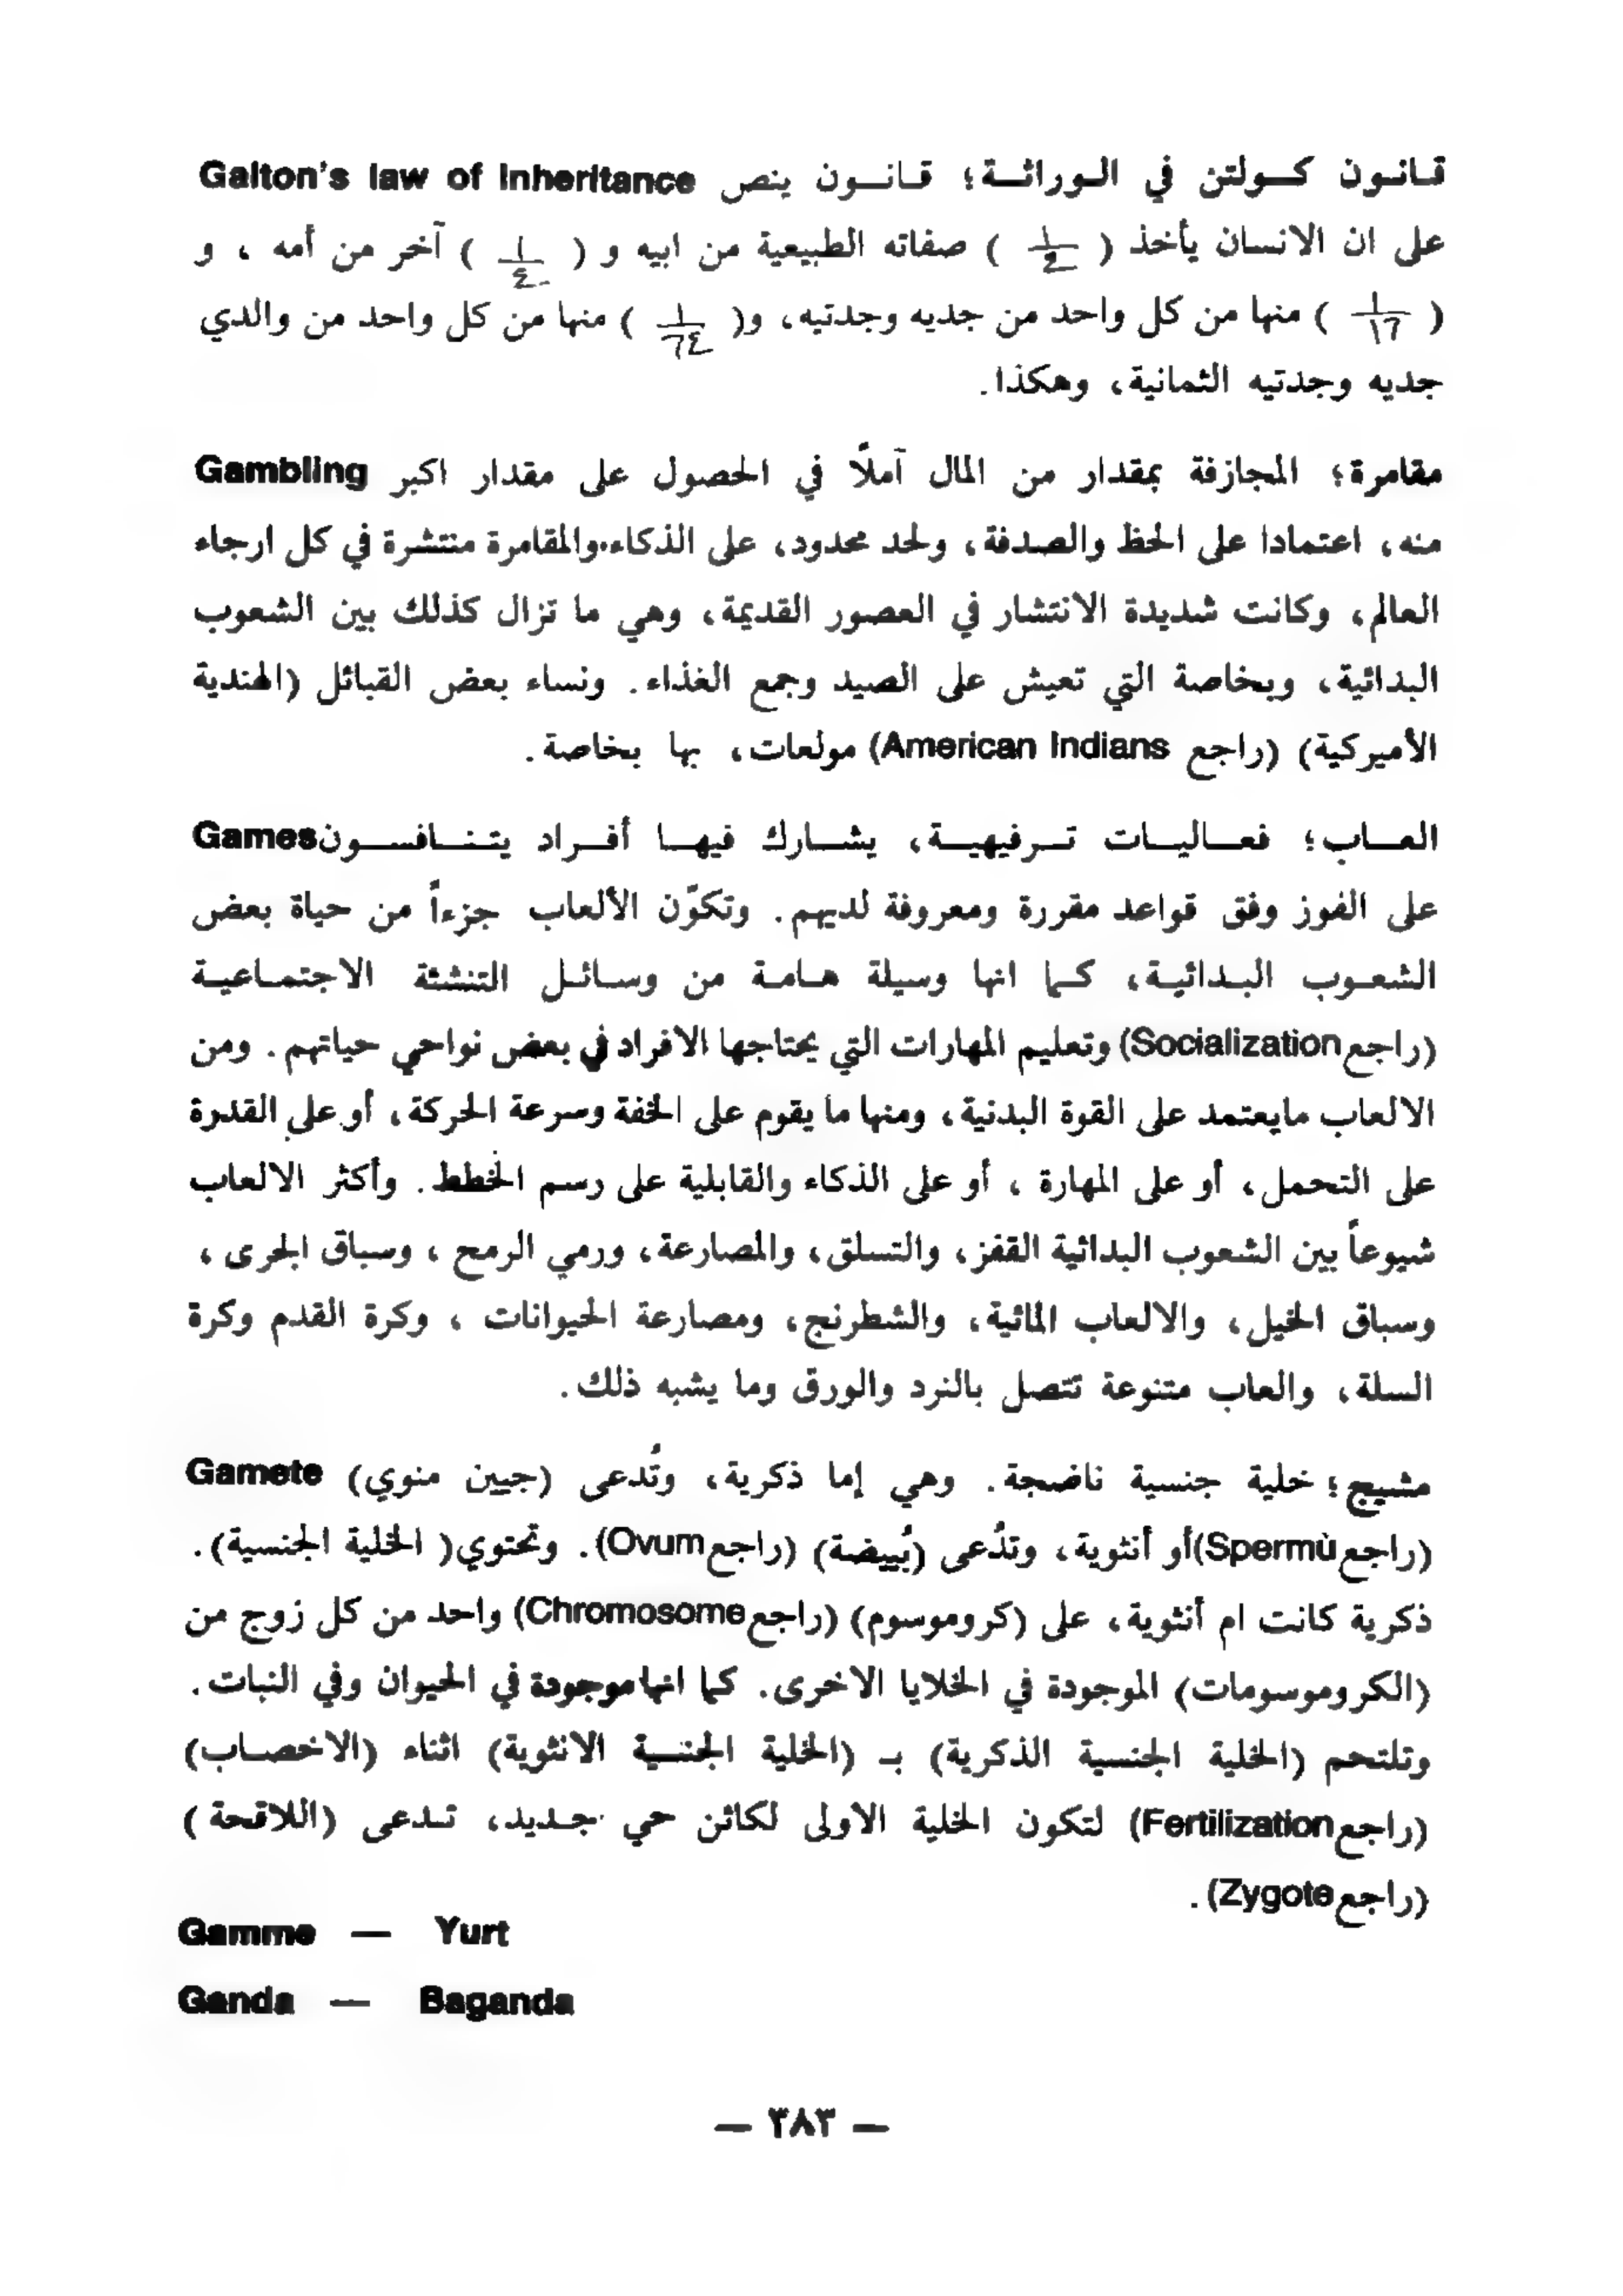 قانون كولتن في الوراثة؛ قانون ينص Galton's law of Inheritance
على ان الانسان يأخذ ( ١/٤ ) صفاته الطبيعية من ابيه و ( ١/٤ ) آخر من أمه ، و
( ١/١٦ ) منها من كل واحد من جديه وجدتيه، و( ١/٦٤ ) منها من كل واحد من والدي
جديه وجدتيه الثمانية، وهكذا.
مقامرة؛ المجازفة بمقدار من المال آملاً في الحصول على مقدار اكبر Gambling
منه، اعتمادا على الحظ والصدفة، ولحد محدود، على الذكاء.والمقامرة منتشرة في كل ارجاء
العالم، وكانت شديدة الانتشار في العصور القديمة، وهي ما تزال كذلك بين الشعوب
البدائية، وبخاصة التي تعيش على الصيد وجمع الغذاء. ونساء بعض القبائل (الهندية
الأميركية) (راجع American Indians) مولعات، بها بخاصة.
العاب؛ فعاليات ترفيهية، يشارك فيها أفراد يتنافسون Games
على الفوز وفق قواعد مقررة ومعروفة لديهم. وتكوّن الألعاب جزءاً من حياة بعض
الشعوب البدائية، كما انها وسيلة هامة من وسائل التنشئة الاجتماعية
(راجع Socialization) وتعليم المهارات التي يحتاجها الافراد في بعض نواحي حياتهم. ومن
الالعاب مايعتمد على القوة البدنية، ومنها ما يقوم على الخفة وسرعة الحركة، أو على القدرة
على التحمل، أو على المهارة ، أو على الذكاء والقابلية على رسم الخطط. وأكثر الالعاب
شيوعاً بين الشعوب البدائية القفز، والتسلق، والمصارعة، ورمي الرمح ، وسباق الجرى ،
وسباق الخيل، والالعاب المائية، والشطرنج، ومصارعة الحيوانات ، وكرة القدم وكرة
السلة، والعاب متنوعة تتصل بالنرد والورق وما يشبه ذلك.
مشيج؛ خلية جنسية ناضجة. وهي إما ذكرية، وتُدعى (جيين منوي) Gamete
(راجع Spermù) أو أنثوية، وتدُعى (بُييضة) (راجع Ovum). وتحتوي( الخلية الجنسية).
ذكرية كانت ام أنثوية، على (كروموسوم) (راجع Chromosome) واحد من كل زوج من
(الكروموسومات) الموجودة في الخلايا الاخرى. كما انها موجودة في الحيوان وفي النبات.
وتلتحم (الخلية الجنسية الذكرية) بـ (الخلية الجنسية الانثوية) اثناء (الاخصاب)
(راجع Fertilization) لتكون الخلية الاولى لكائن حي جديد، تدعى (اللاقحة )
(راجع Zygote).
Gamme — Yurt
Ganda — Baganda
— ٣٨٣ —